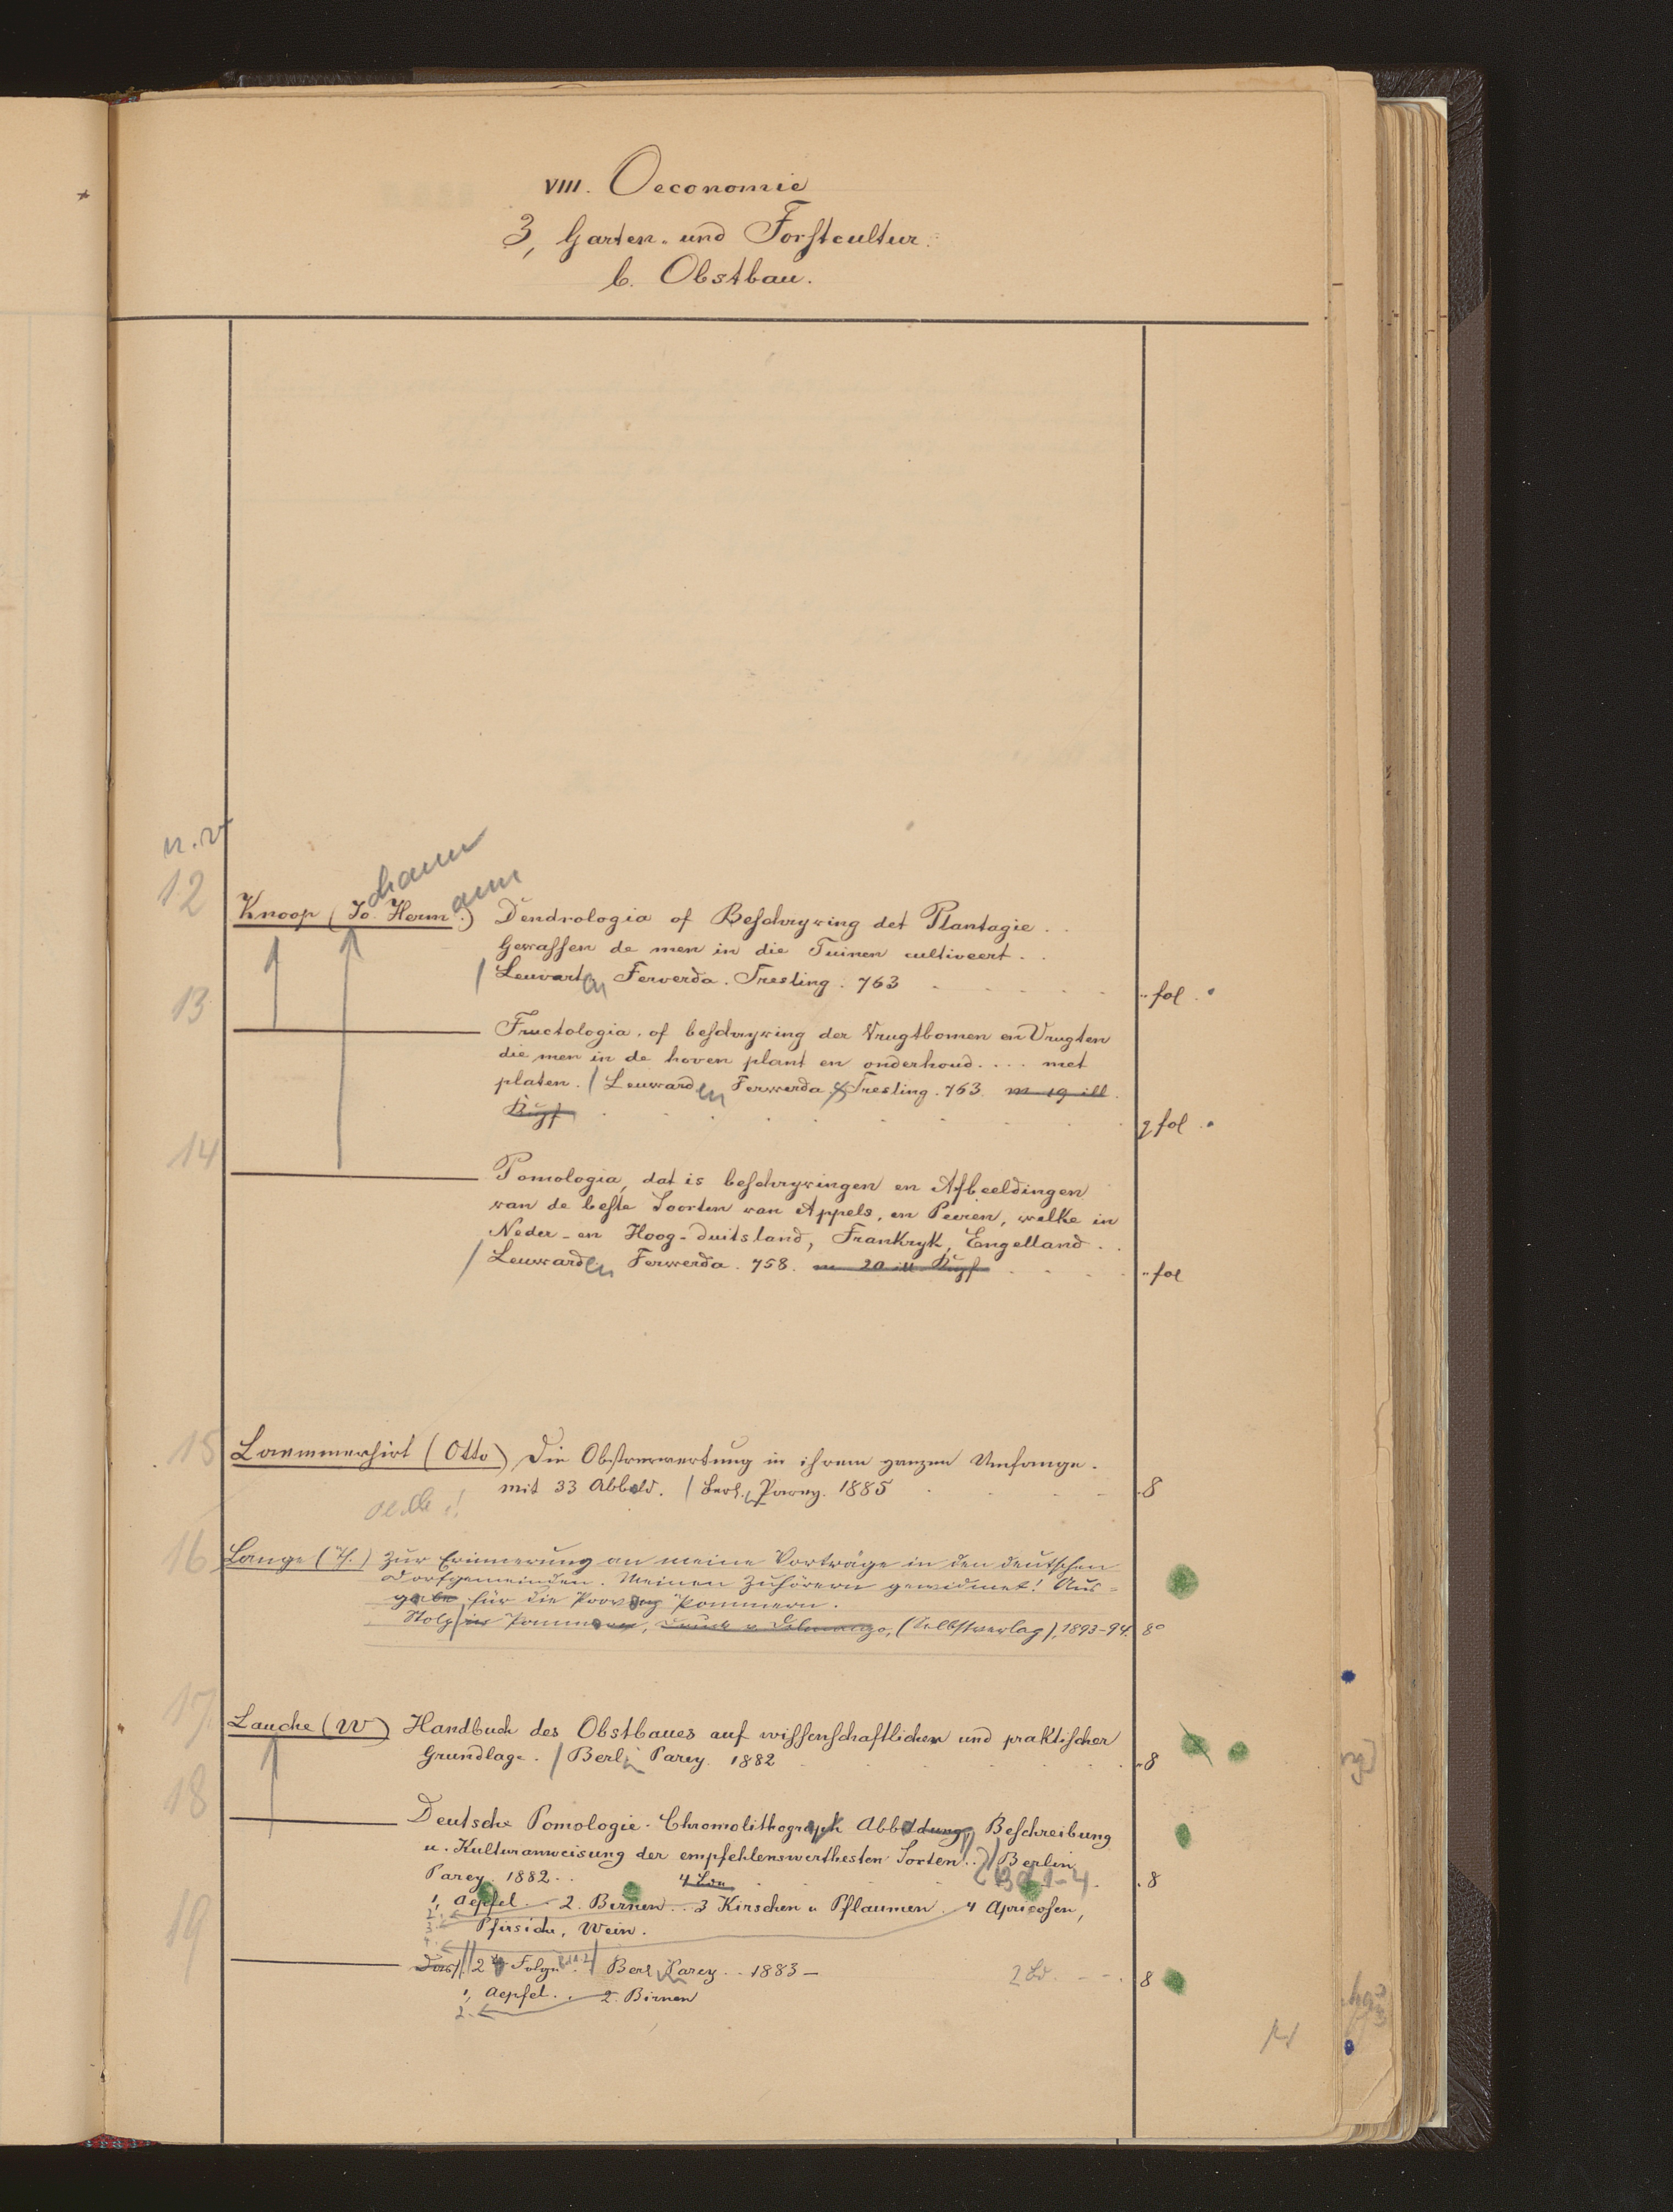 VIII. Oeconomie
3, Garten- und Forstcultur.
b. Obstbau.
12
Knoop (Johann Hermann) Dendrologia of Beschryving det Plantagie . .
Gewassen de men in die Tuinen cultiveert . .
Leuvarten Ferverda. Tresling. 763 fol.
13
Fructologia, of beschryving der Vrugtbomen en Vrugten
die men in de hoven plant en onderhoud . . . . met
platen. / Leuwarden Ferwerda & Tresling. 763. m 19 ill.
Kupf fol.
14
Pomologia, dat is beschryvingen en Afbeeldingen
van de beste Soorten van Appels, en Peeren, welke in
Neder- en Hoog-duitsland, Frankryk, Engelland . .
/ Leuwarden Ferwerda. 758. m 20 ill. Kupf fol
15
Laemmerhirt (Otto) Die Obstverwertung in ihrem ganzen Umfange.
mit 33 Abbild. / Berl., Parey. 1885 8
16
Lange (Th.) Zur Erinnerung an meine Vorträge in den deutschen
Dorfgemeinden. Meinen Zuhörern gewidmet! Aus-
gabe für die Provinz Pommern.
Stolp in Pommern, (Selbstverlag), 1893-94. 8°
17
Lauche (W) Handbuch des Obstbaues auf wissenschaftlicher und praktischer
Grundlage. / Berlin Parey. 1882 8
18
Deutsche Pomologie. Chromolithograph Abbildung, Beschreibung
u. Kulturanweisung der empfehlenswerthesten Sorten . . / Berlin
Parey. 1882 . . Bd 1-4 8
1, Aepfel. — 2. Birnen — 3 Kirschen u Pflaumen. 4 Apricosen,
Pfirsiche, Wein.
19
Dass. 2 Folge. Berl Parey . . 1883 — 2 Bd. 8
1, Aepfel. — 2. Birnen
2.